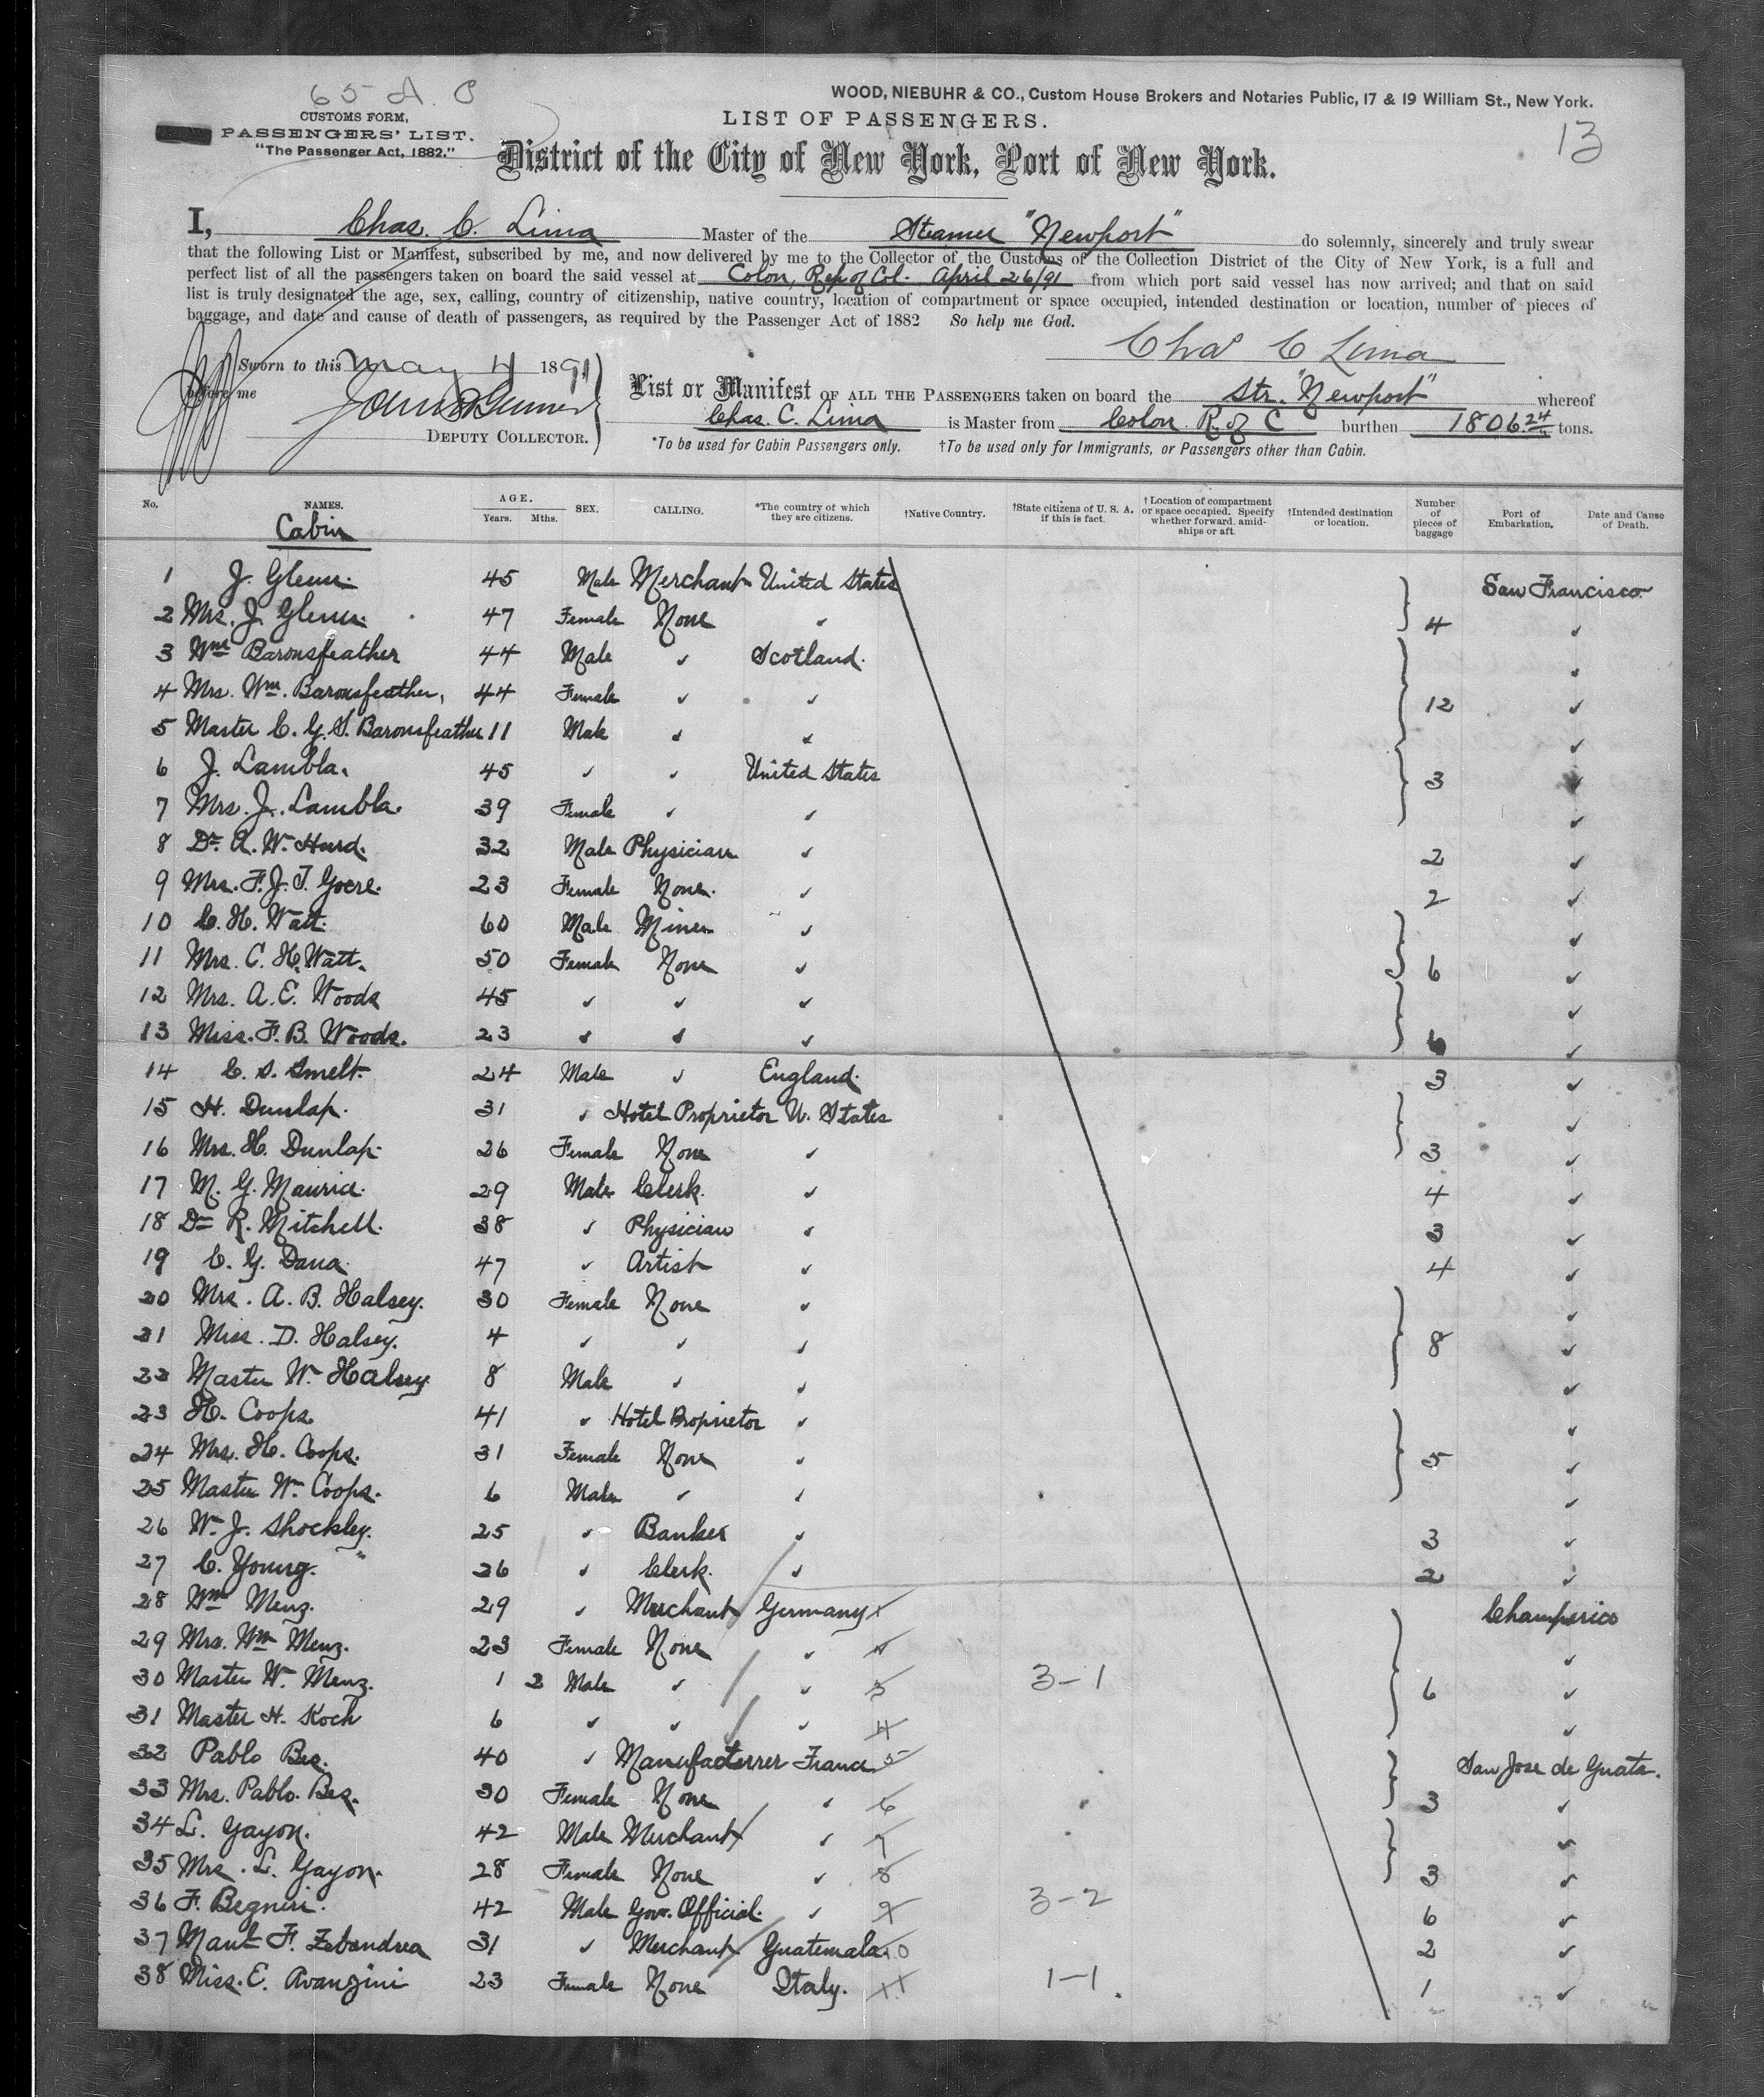 65 A. C
WOOD, NIEBUHR & CO., Custom House Brokers and Notaries Public, 17 & 19 William St., New York.
CUSTOMS FORM,
PASSENGERS' LIST.
"The Passenger Act, 1882."
LIST OF PASSENGERS.
13
District of the City of New York, Port of New York.
I, Chas. C. Lima Master of the Steamer "Newport" do solemnly, sincerely and truly swear
that the following List or Manifest, subscribed by me, and now delivered by me to the Collector of the Customs of the Collection District of the City of New York, is a full and
perfect list of all the passengers taken on board the said vessel at Colon, Rep of Col. April 26/91 from which port said vessel has now arrived; and that on said
list is truly designated the age, sex, calling, country of citizenship, native country, location of compartment or space occupied, intended destination or location, number of pieces of
baggage, and date and cause of death of passengers, as required by the Passenger Act of 1882 So help me God.
Chas C Lima
Sworn to this May 4 1891
before me
DEPUTY COLLECTOR.
List or Manifest OF ALL THE PASSENGERS taken on board the Str. "Newport" whereof
Chas. C. Lima is Master from Colon R. of C burthen 1806.24 tons.
*To be used for Cabin Passengers only. †To be used only for Immigrants, or Passengers other than Cabin.
No. NAMES. AGE. Years. Mths. SEX. CALLING. *The country of which they are citizens. †Native Country. †State citizens of U. S. A. if this is fact. †Location of compartment or space occupied. Specify whether forward, amidships or aft. †Intended destination or location. Number of pieces of baggage Port of Embarkation. Date and Cause of Death.
Cabin
1 J. Glenn. 45 Male Merchant United States San Francisco
2 Mrs. J. Glenn. 47 Female None " 4 "
3 Wm Baronsfeather 44 Male " Scotland. "
4 Mrs. Wm. Baronsfeather, 44 Female " " 12 "
5 Master C. G. S. Baronsfeather 11 Male " " "
6 J. Lambla. 45 " " United States 3 "
7 Mrs. J. Lambla. 39 Female " " "
8 Dr. A. W. Hurd. 32 Male Physician " 2 "
9 Mrs. F. J. T. Goere. 23 Female None. " 2 "
10 C. H. Watt. 60 Male Miner " "
11 Mrs. C. H. Watt. 50 Female None " 6 "
12 Mrs. A. E. Woods 45 " " " "
13 Miss. F. B. Woods. 23 " " " 6 "
14 C. S. Smelt. 24 Male " England. 3 "
15 H. Dunlap. 31 " Hotel Proprietor U. States "
16 Mrs. H. Dunlap. 26 Female None " 3 "
17 M. G. Maurice. 29 Male Clerk. " 4 "
18 Dr R. Mitchell. 38 " Physician " 3 "
19 C. G. Dana. 47 " Artist " 4 "
20 Mrs. A. B. Halsey. 30 Female None " "
21 Miss. D. Halsey. 4 " " " 8 "
22 Master W. Halsey. 8 Male " " "
23 H. Coops. 41 " Hotel Proprietor " "
24 Mrs. H. Coops. 31 Female None " 5 "
25 Master W. Coops. 6 Male " " "
26 W. J. Shockley. 25 " Banker " 3 "
27 C. Young. 26 " Clerk. " 2 "
28 Wm Menz. 29 " Merchant Germany 1 Champerico
29 Mrs. Wm Menz. 23 Female None " "
30 Master W. Menz. 1 2 Male " " 3 3-1 6 "
31 Master H. Koch 6 " " " 4 "
32 Pablo Bes. 40 " Manufacterrer France 5 San Jose de Guata.
33 Mrs. Pablo. Bes. 30 Female None " 6 3 "
34 L. Gayon. 42 Male Merchant " 7 "
35 Mrs. L. Gayon. 28 Female None " 8 3 "
36 F. Begniri. 42 Male Gov. Official. " 9 3-2 6 "
37 Manl F. Zebandrea 31 " Merchant Guatemala 10 2 "
38 Miss. E. Avanzini 23 Female None Italy. 11 1-1 1 "